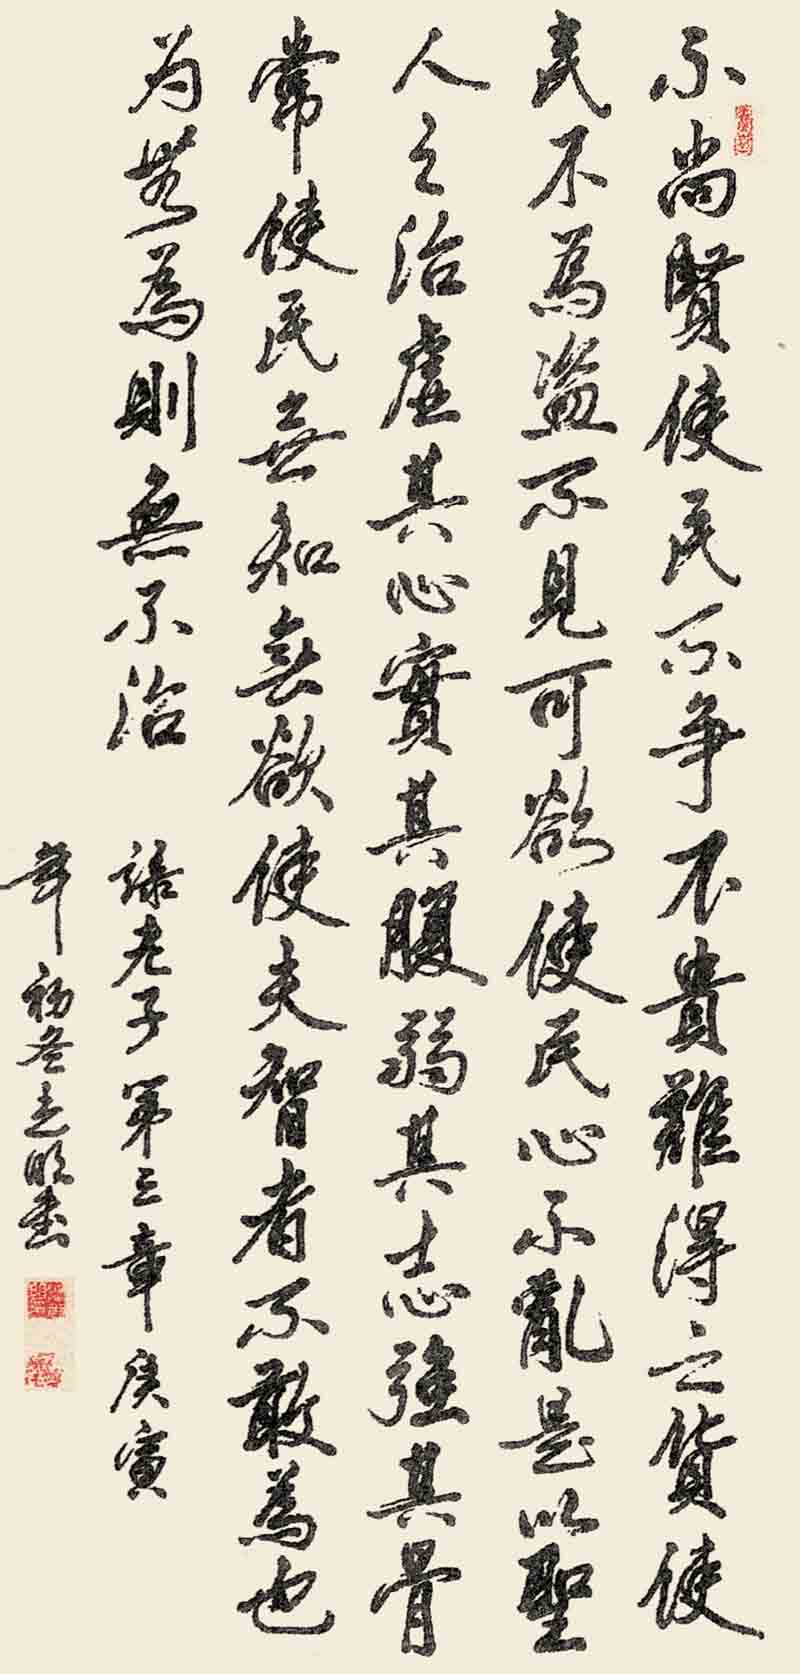 不尚賢使民不争不貴難得之貨使
民不為盗不見可欲使民心不亂是以聖
人之治虚其心實其腹弱其志強其骨
常使民無知無欲使夫智者不敢為也
为無為則無不治
錄老子第三章庚寅
年初冬志明書